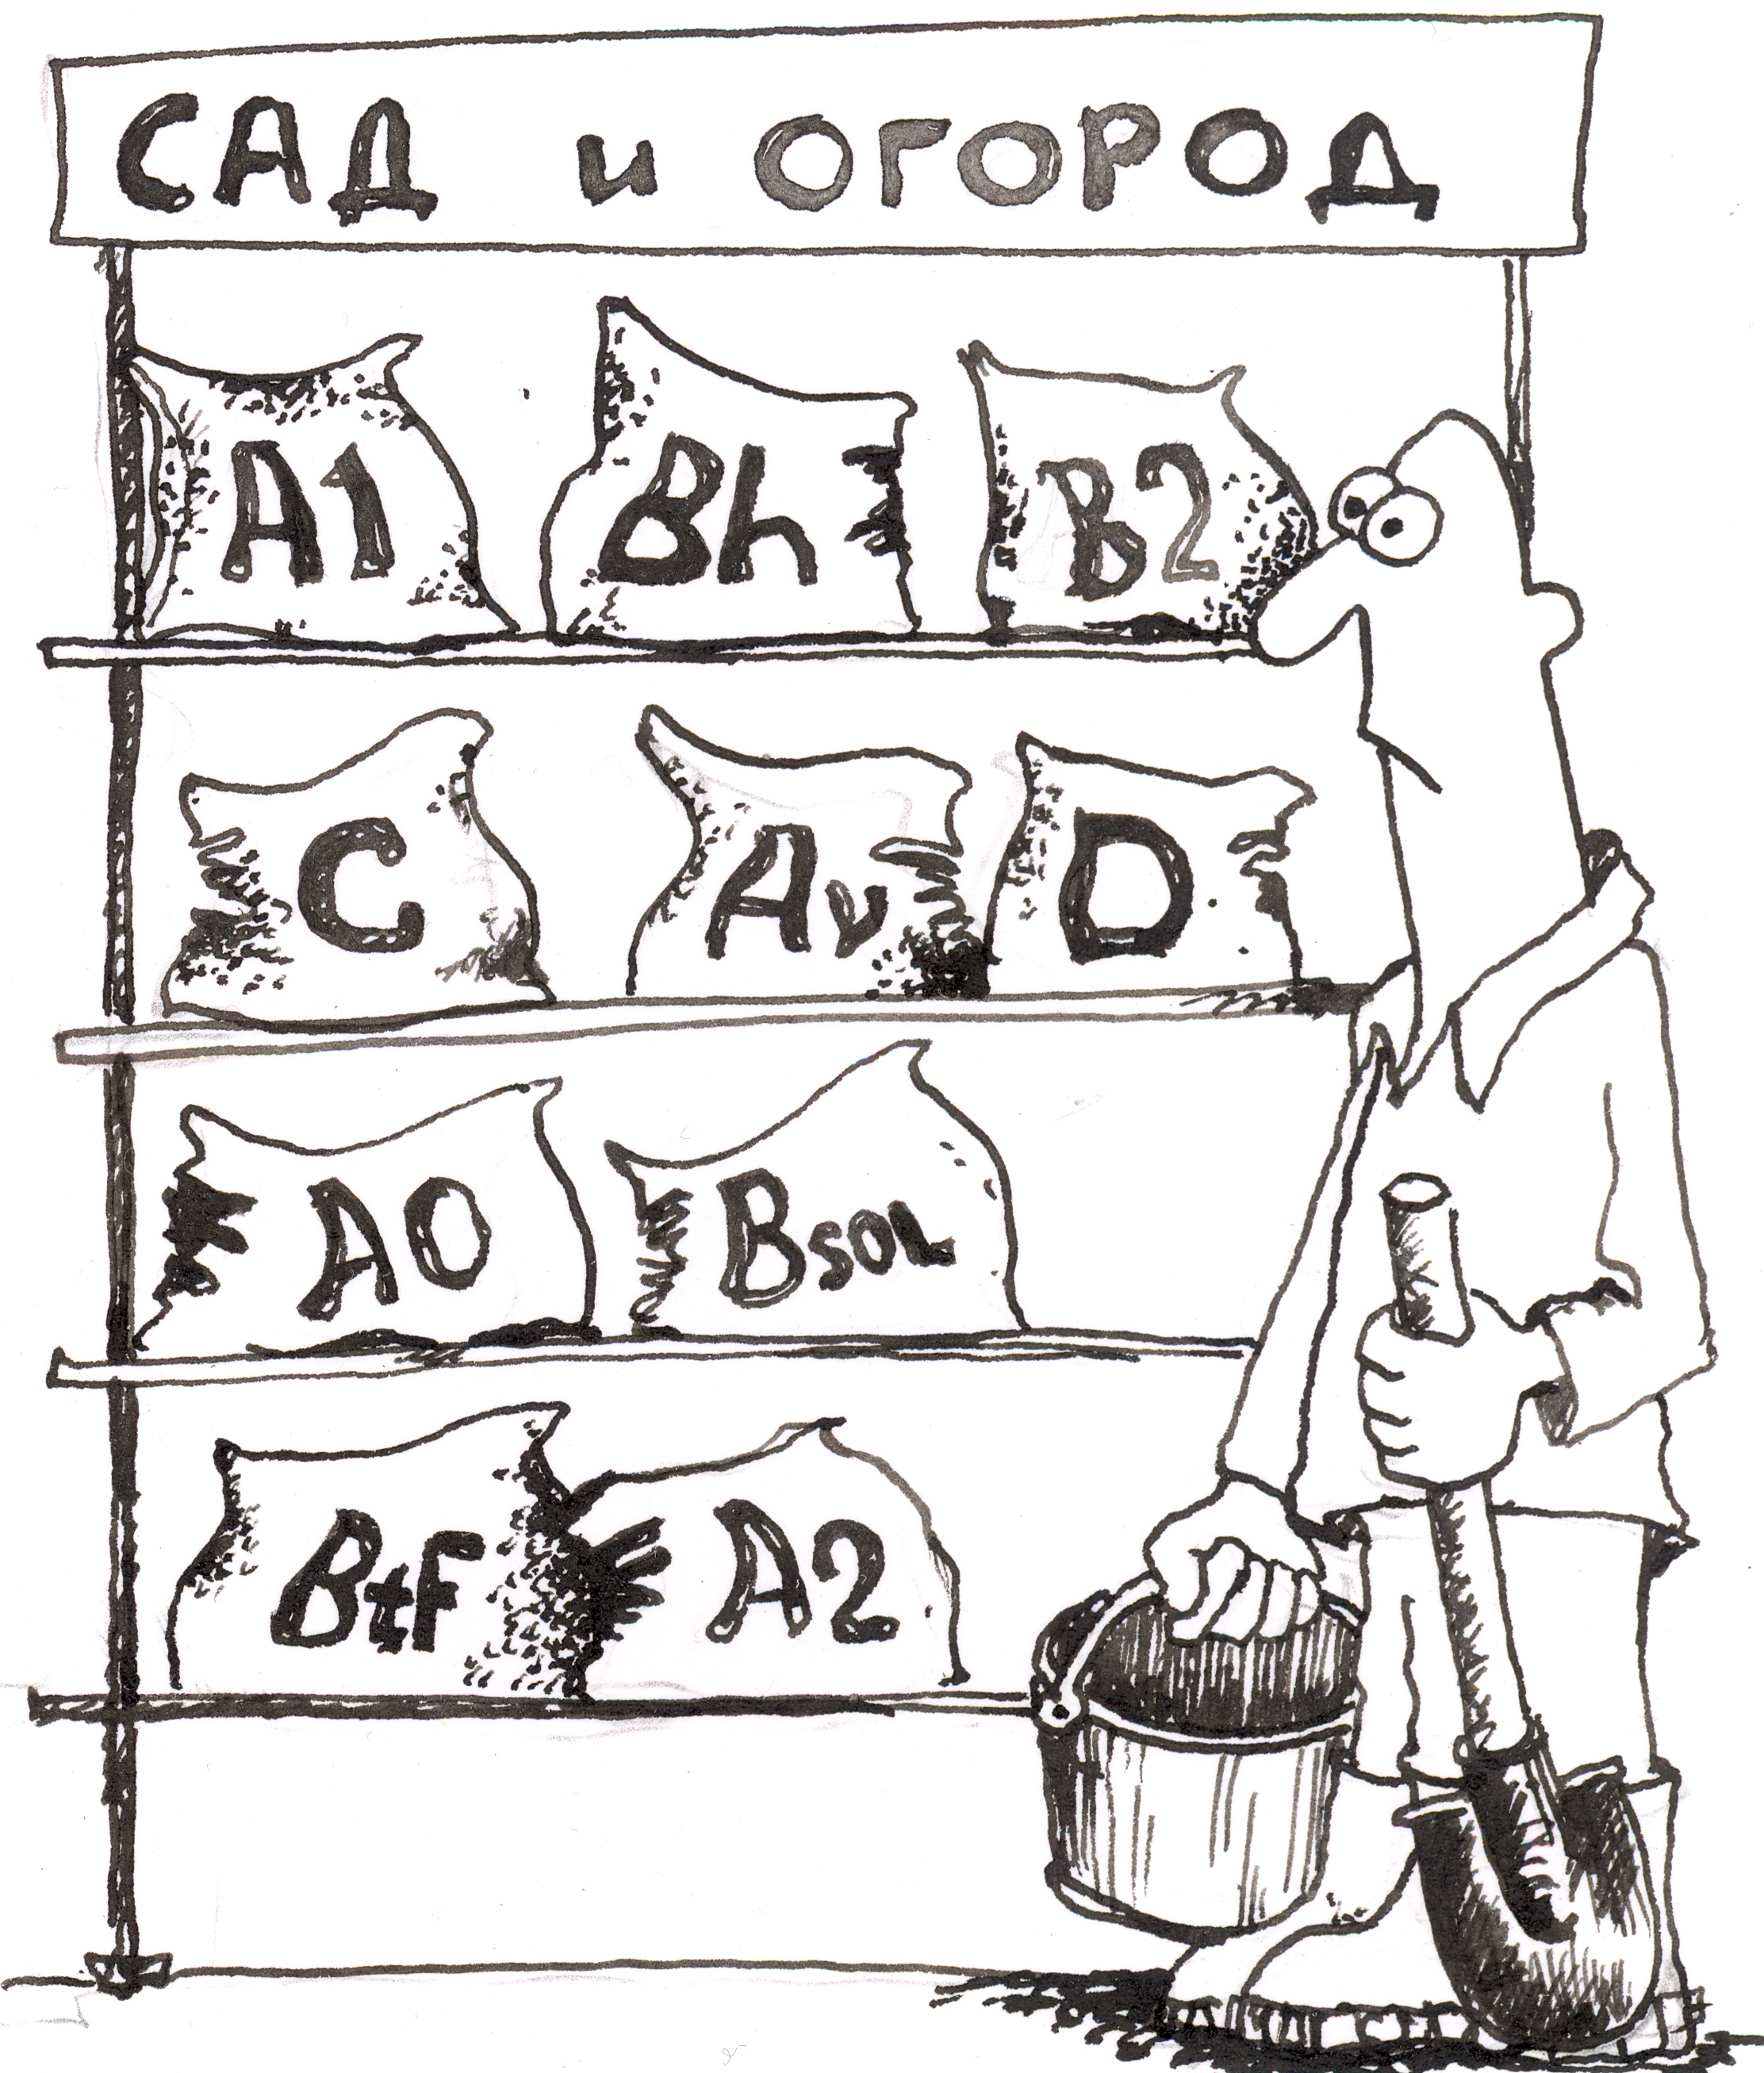 САД и ОГОРОД
A1 Bh B2
C Av D
A0 BSOL
Btf A2